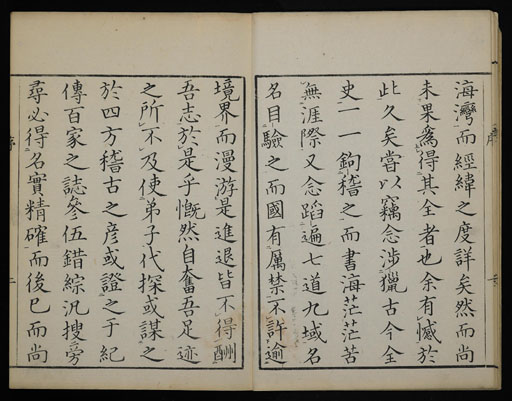 海灣而經緯之度詳矣然而尚
未果為得其全者也余有憾於
此久矣嘗以竊念涉獵古今全
史一一鉤稽之而書海茫茫苦
無涯際又念蹈遍七道九域名
名目驗之而國有厲禁不許逾
境界而漫游是進退皆不得酬
吾志於是乎慨然自奮吾足迹
之所不及使弟子代探或謀之
於四方稽古之彦或證之于紀
傳百家之誌參伍錯綜汎搜旁
尋必得名實精確而後已而尚
序
序
二